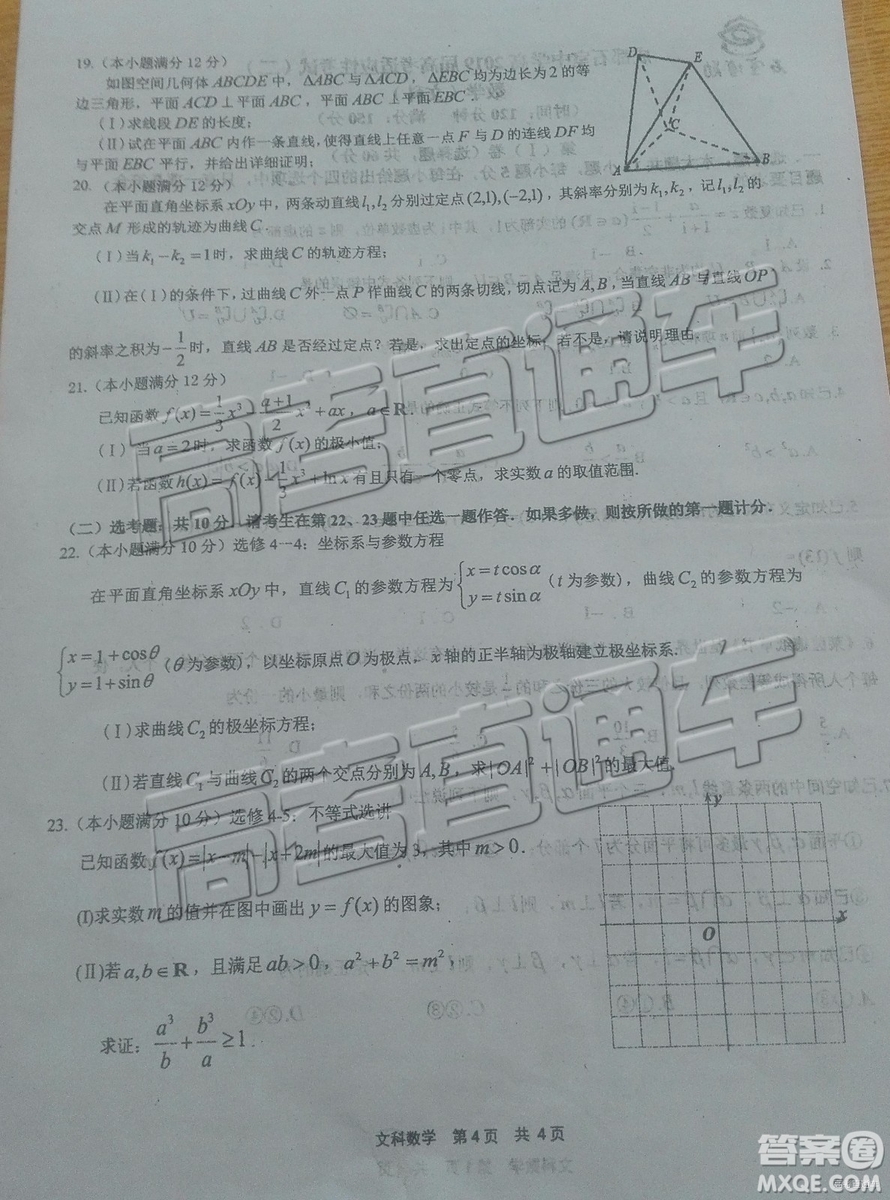 19.（本小题满分12分）
如图空间几何体ABCDE中，△ABC与△ACD，△EBC均为边长为2的等
边三角形，平面ACD⊥平面ABC，平面ABC⊥平面EBC．
（Ⅰ）求线段DE的长度；
（Ⅱ）试在平面ABC内作一条直线，使得直线上任意一点F与D的连线DF均
与平面EBC平行，并给出详细证明；
D
E
C
A
B
20.（本小题满分12分）
在平面直角坐标系xOy中，两条动直线l₁,l₂分别过定点(2,1),(-2,1)，其斜率分别为k₁,k₂，记l₁,l₂的
交点M形成的轨迹为曲线C．
（Ⅰ）当k₁-k₂=1时，求曲线C的轨迹方程；
（Ⅱ）在（Ⅰ）的条件下，过曲线C外一点P作曲线C的两条切线，切点记为A,B，当直线AB与直线OP
的斜率之积为-1/2时，直线AB是否经过定点？若是，求出定点的坐标；若不是，请说明理由．
21.（本小题满分12分）
已知函数f(x)=1/3x³-(a+1)/2x²+ax，a∈R．
（Ⅰ）当a=2时，求函数f(x)的极小值；
（Ⅱ）若函数h(x)=f(x)-1/3x³+lnx有且只有一个零点，求实数a的取值范围．
（二）选考题：共10分．请考生在第22、23题中任选一题作答．如果多做，则按所做的第一题计分．
22.（本小题满分10分）选修4--4：坐标系与参数方程
在平面直角坐标系xOy中，直线C₁的参数方程为{x=tcosα y=tsinα（t为参数），曲线C₂的参数方程为
{x=1+cosθ y=1+sinθ（θ为参数），以坐标原点O为极点，x轴的正半轴为极轴建立极坐标系．
（Ⅰ）求曲线C₂的极坐标方程；
（Ⅱ）若直线C₁与曲线C₂的两个交点分别为A,B，求|OA|²+|OB|²的最大值．
23.（本小题满分10分）选修4-5：不等式选讲
已知函数f(x)=|x-m|-|x+2m|的最大值为3，其中m>0．
(Ⅰ)求实数m的值并在图中画出y=f(x)的图象；
(Ⅱ)若a,b∈R，且满足ab>0，a²+b²=m²，
求证：a³/b+b³/a≥1．
y
x
O
文科数学 第4页 共4页
高考直通车
高考直通车
答案圈
MXQE.COM